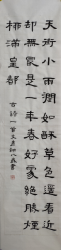 天街小雨潤如酥草色遥看近
却無最是一年春好處絕勝煙
柳滿皇都
右詩一首